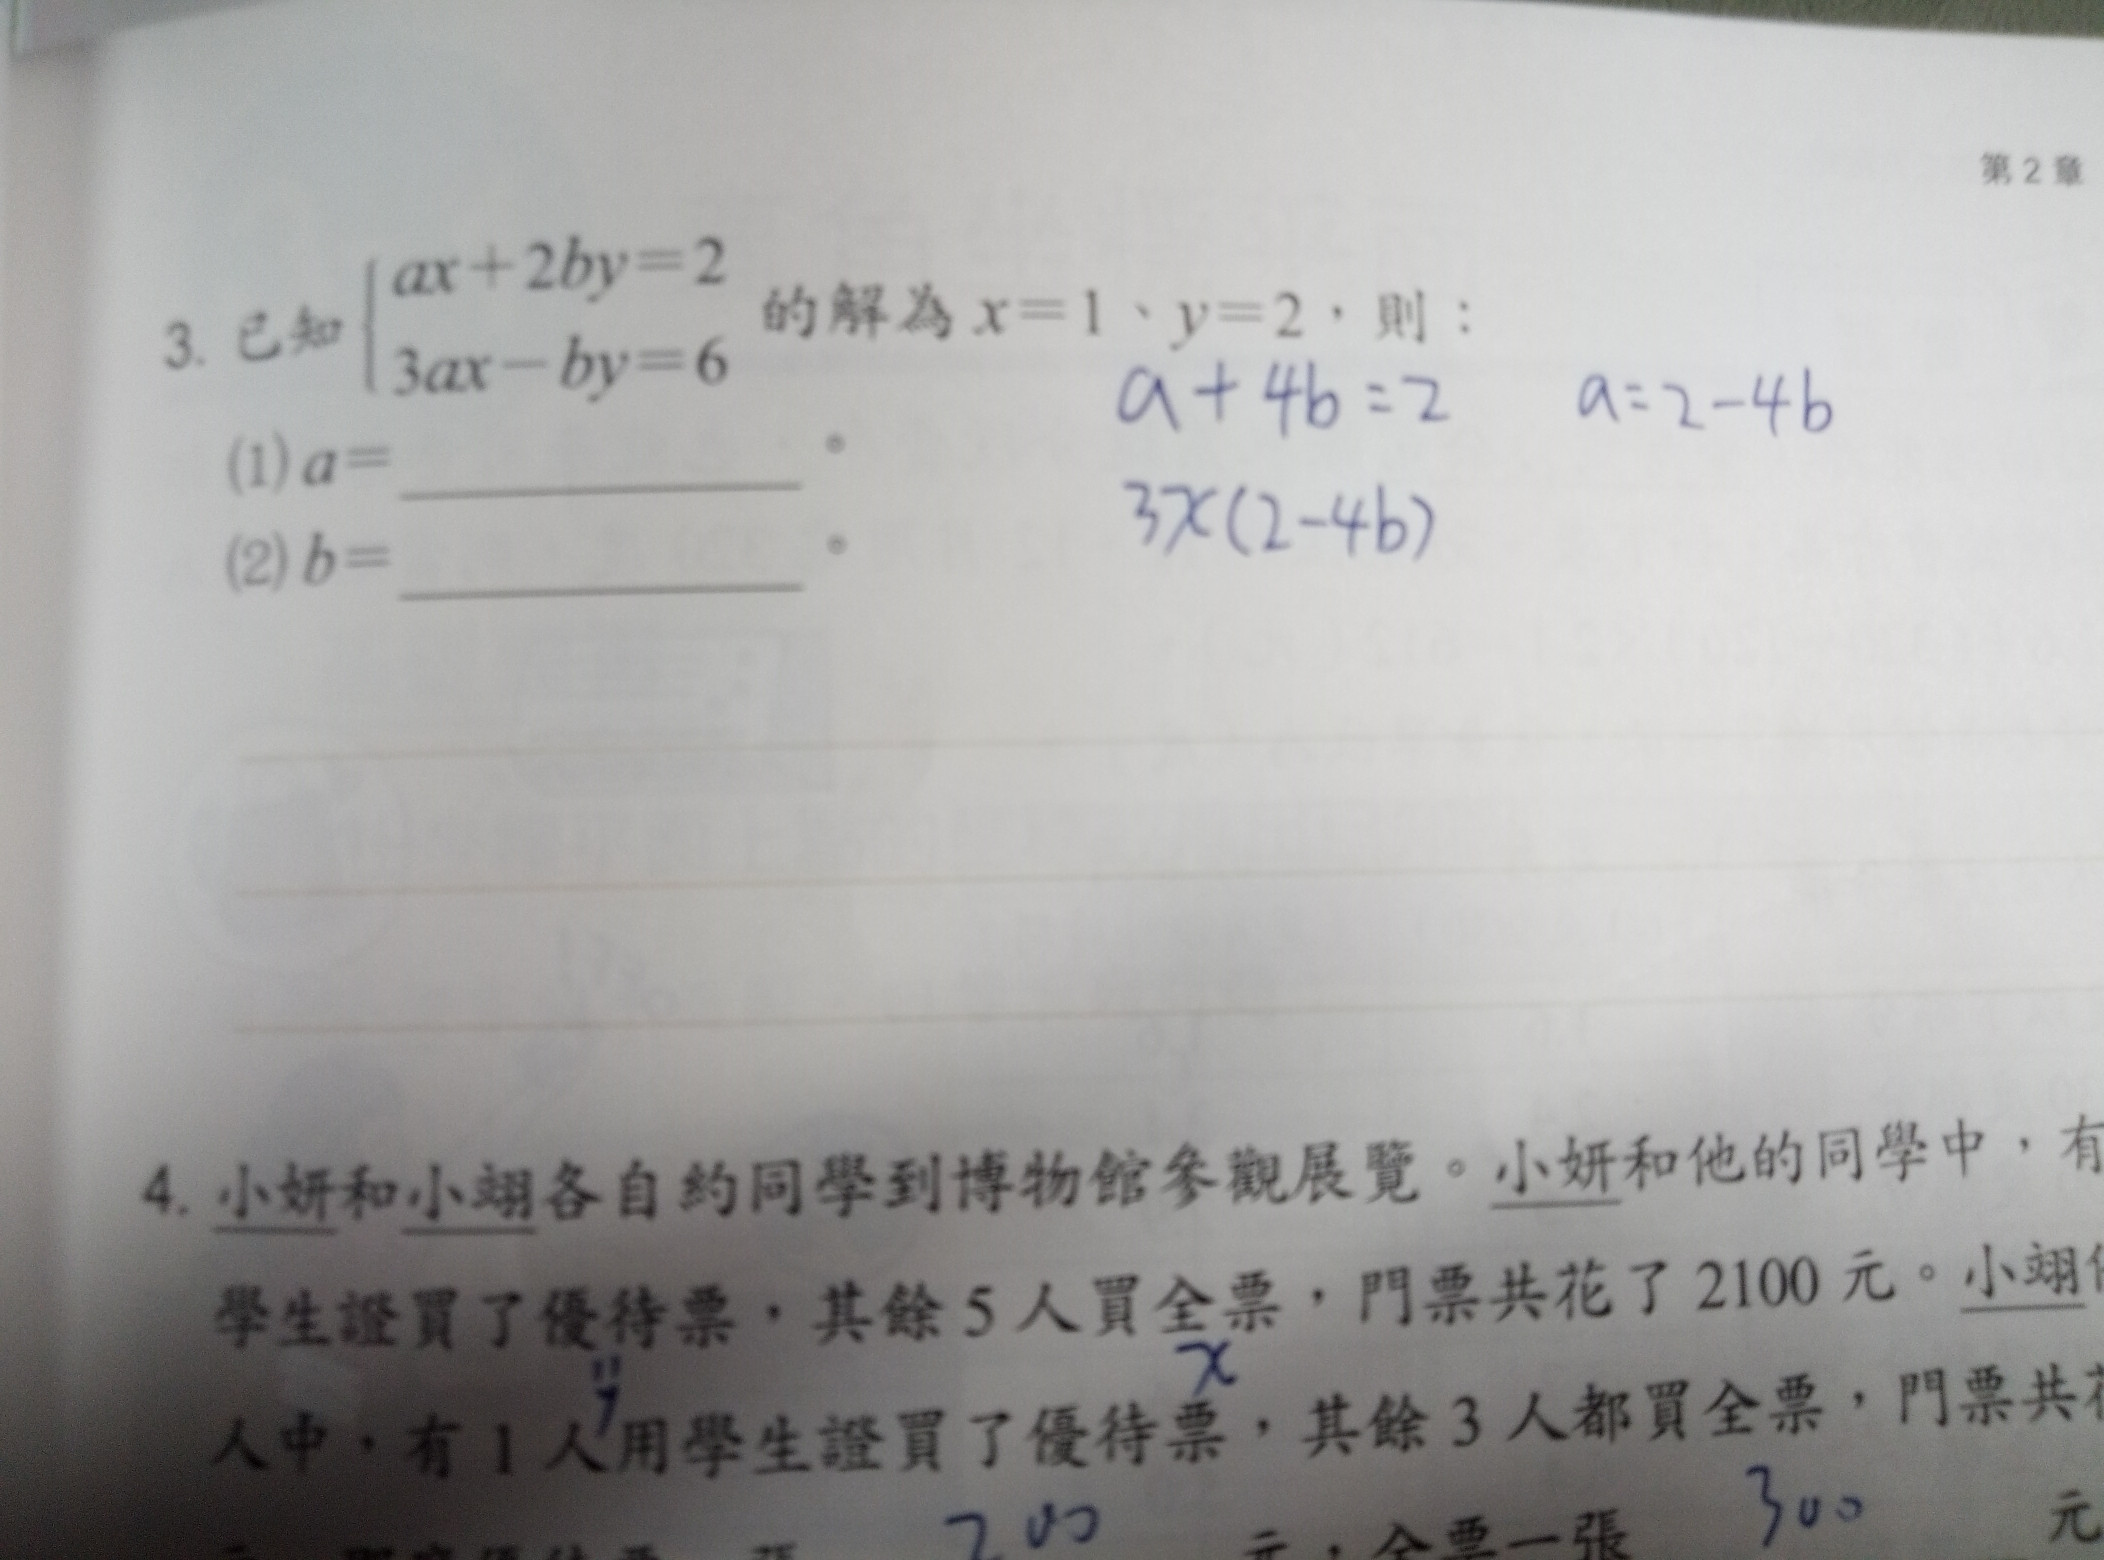 第2章
3. 已知 { ax+2by=2
3ax-by=6 的解為 x=1、y=2，則：
a+4b=2 a=2-4b
(1) a= 。
3x(2-4b)
(2) b= 。
4. 小妍和小翊各自約同學到博物館參觀展覽。小妍和他的同學中，有
學生證買了優待票，其餘5人買全票，門票共花了2100元。小翊
y x
人中，有1人用學生證買了優待票，其餘3人都買全票，門票共
200 元，全票一張 300 元